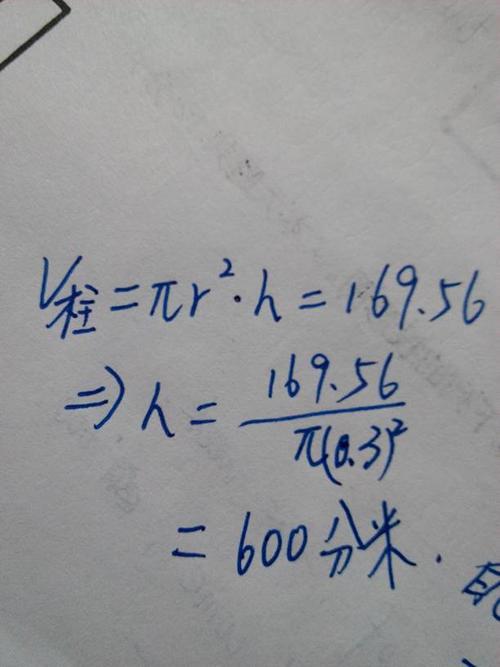 V柱=πr²·h=169.56
⇒h=169.56/π(0.3)²
=600分米.